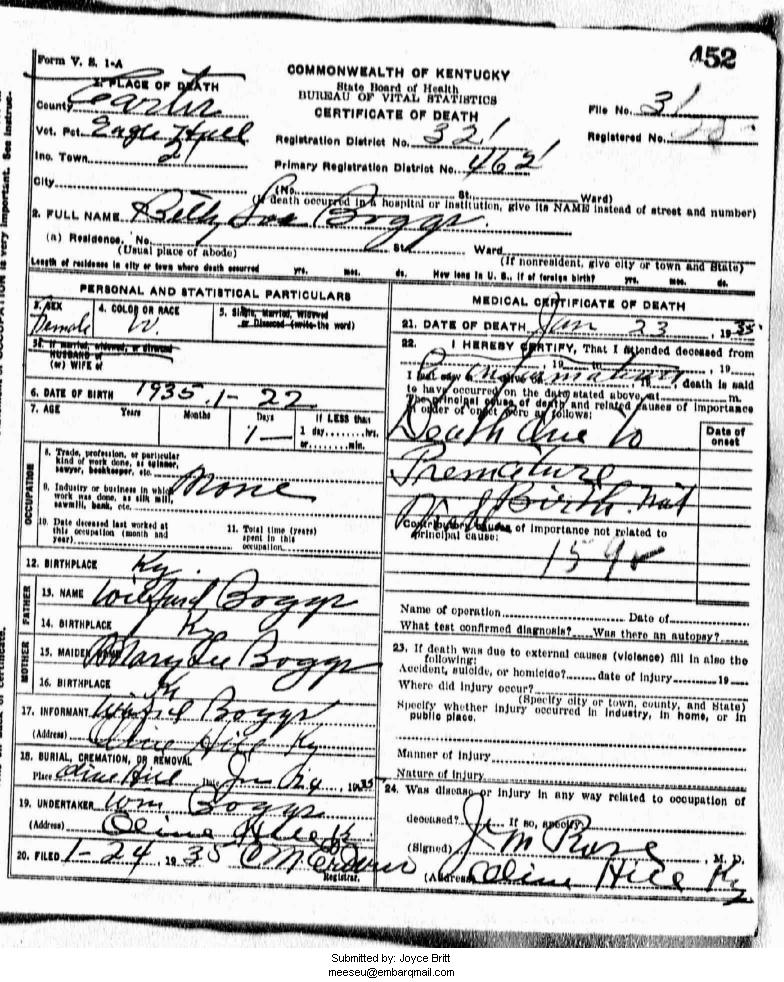 452
Form V. S. 1-A
COMMONWEALTH OF KENTUCKY
State Board of Health
BUREAU OF VITAL STATISTICS
CERTIFICATE OF DEATH
1. PLACE OF DEATH
County Carter
File No. 31
Vot. Pct. Eagle Hill
Registration District No. 321
Registered No.
Inc. Town 21
Primary Registration District No. 462
City (No. St. Ward)
(If death occurred in a hospital or institution, give its NAME instead of street and number)
2. FULL NAME Betty Boggs
(a) Residence. No. St. Ward
(Usual place of abode) (If nonresident, give city or town and State)
Length of residence in city or town where death occurred yrs. mos. ds. How long in U. S., if of foreign birth? yrs. mos. ds.
PERSONAL AND STATISTICAL PARTICULARS
3. SEX Female
4. COLOR OR RACE W.
5. Single, Married, Widowed or Divorced (write the word)
5a. If married, widowed, or divorced
HUSBAND of
(or) WIFE of
6. DATE OF BIRTH 1935 1-22
7. AGE Years Months Days 1 If LESS than
1 day, hrs.
or min.
OCCUPATION
8. Trade, profession, or particular
kind of work done, as spinner,
sawyer, bookkeeper, etc.
9. Industry or business in which
work was done, as silk mill,
sawmill, bank, etc.
None
10. Date deceased last worked at
this occupation (month and
year)
11. Total time (years)
spent in this
occupation
12. BIRTHPLACE Ky.
FATHER
13. NAME Boggs
14. BIRTHPLACE Ky
MOTHER
15. MAIDEN NAME Mary Lee Boggs
16. BIRTHPLACE Ky
17. INFORMANT Boggs
(Address) Olive Hill Ky
18. BURIAL, CREMATION, OR REMOVAL
Place Olive Hill Date Jan 24, 1935
19. UNDERTAKER Wm Boggs
(Address) Olive Hill K
20. FILED 1-24 1935
Registrar.
MEDICAL CERTIFICATE OF DEATH
21. DATE OF DEATH Jan 23, 1935
22. I HEREBY CERTIFY, That I attended deceased from
, 19 to , 19
I last saw h alive on 19 , death is said
to have occurred on the date stated above, at m.
The principal cause of death and related causes of importance
in order of onset were as follows:
Date of onset
Death due to
Premature
Birth
Contributory causes of importance not related to
principal cause:
159
Name of operation Date of
What test confirmed diagnosis? Was there an autopsy?
23. If death was due to external causes (violence) fill in also the
following:
Accident, suicide, or homicide? date of injury 19
Where did injury occur?
(Specify city or town, county, and State)
Specify whether injury occurred in industry, in home, or in
public place.
Manner of injury
Nature of injury
24. Was disease or injury in any way related to occupation of
deceased? If so, specify
(Signed) J M Rose, M. D.
(Address) Olive Hill Ky
Submitted by: Joyce Britt
meeseu@embarqmail.com